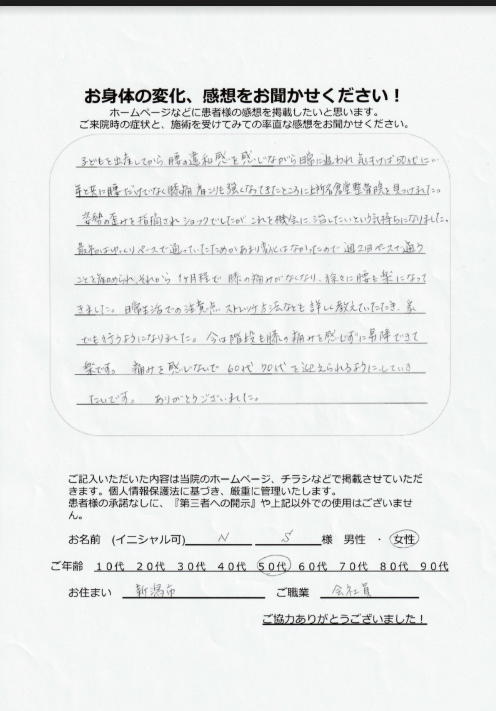 お身体の変化、感想をお聞かせください！
ホームページなどに患者様の感想を掲載したいと思います。
ご来院時の症状と、施術を受けてみての率直な感想をお聞かせください。
子どもを出産してから 腰の違和感を感じながら日常に追われ 気付けば50代に…
年と共に腰だけでなく膝痛 肩こりも強くなってきたところに上所名倉堂整骨院を見つけました。
姿勢の歪みを指摘され ショックでしたが これを機会に 治したいという気持ちになりました。
最初はゆっくりペースで通っていたためかあまり変化はなかったので 週2回ペースで通う
ことを勧められ、それから 1ヶ月程で 膝の痛みがなくなり、徐々に腰も楽になって
きました。 日常生活での注意点 ストレッチ方法なども 詳しく教えていただき、家
でも行うようになりました。 今は階段も膝の痛みを感じずに昇降できて
楽です。 痛みを感じないで 60代 70代 を迎えられるようにしていき
たいです。 ありがとうございました。
ご記入いただいた内容は当院のホームページ、チラシなどで掲載させていただ
きます。個人情報保護法に基づき、厳重に管理いたします。
患者様の承諾なしに、『第三者への開示』や上記以外での使用はございませ
ん。
お名前 (イニシャル可) N S 様 男性 ・ 女性
ご年齢 10代 20代 30代 40代 50代 60代 70代 80代 90代
お住まい 新潟市 ご職業 会社員
ご協力ありがとうございました！